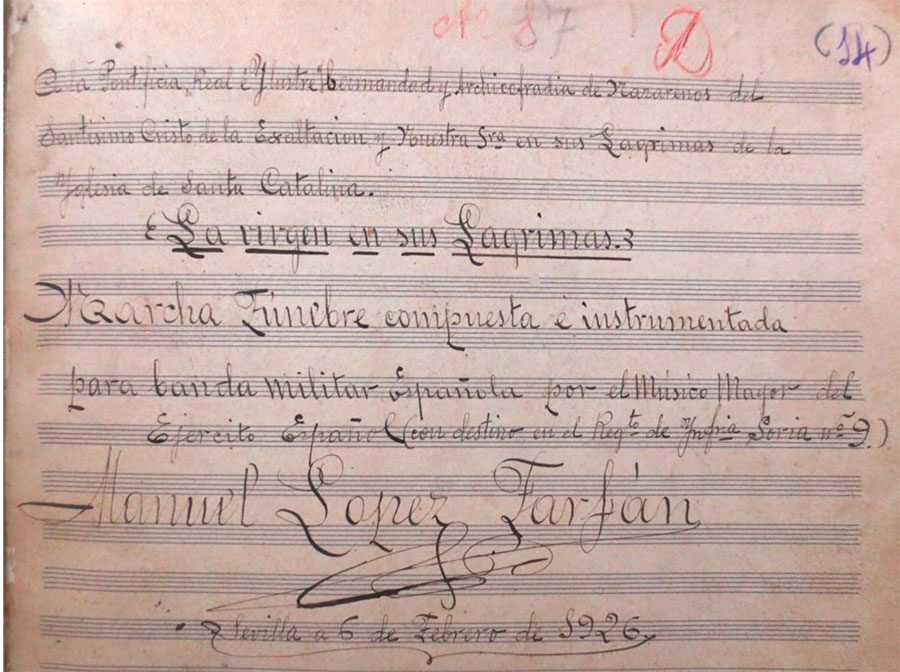 Nº 87 D (14)
A la Pontificia, Real é Ylustre Hermandad y Archicofradia de Nazarenos del
Santisimo Cristo de la Exaltacion y Nuestra Sra en sus Lagrimas de la
Yglesia de Santa Catalina.
La virgen en sus Lagrimas.
Marcha Fúnebre compuesta é instrumentada
para banda militar Española por el Músico Mayor del
Ejercito Español (con destino en el Regto de Ynfria Soria nº 9.)
Manuel Lopez Farfán
Sevilla a 6 de Febrero de 1926.